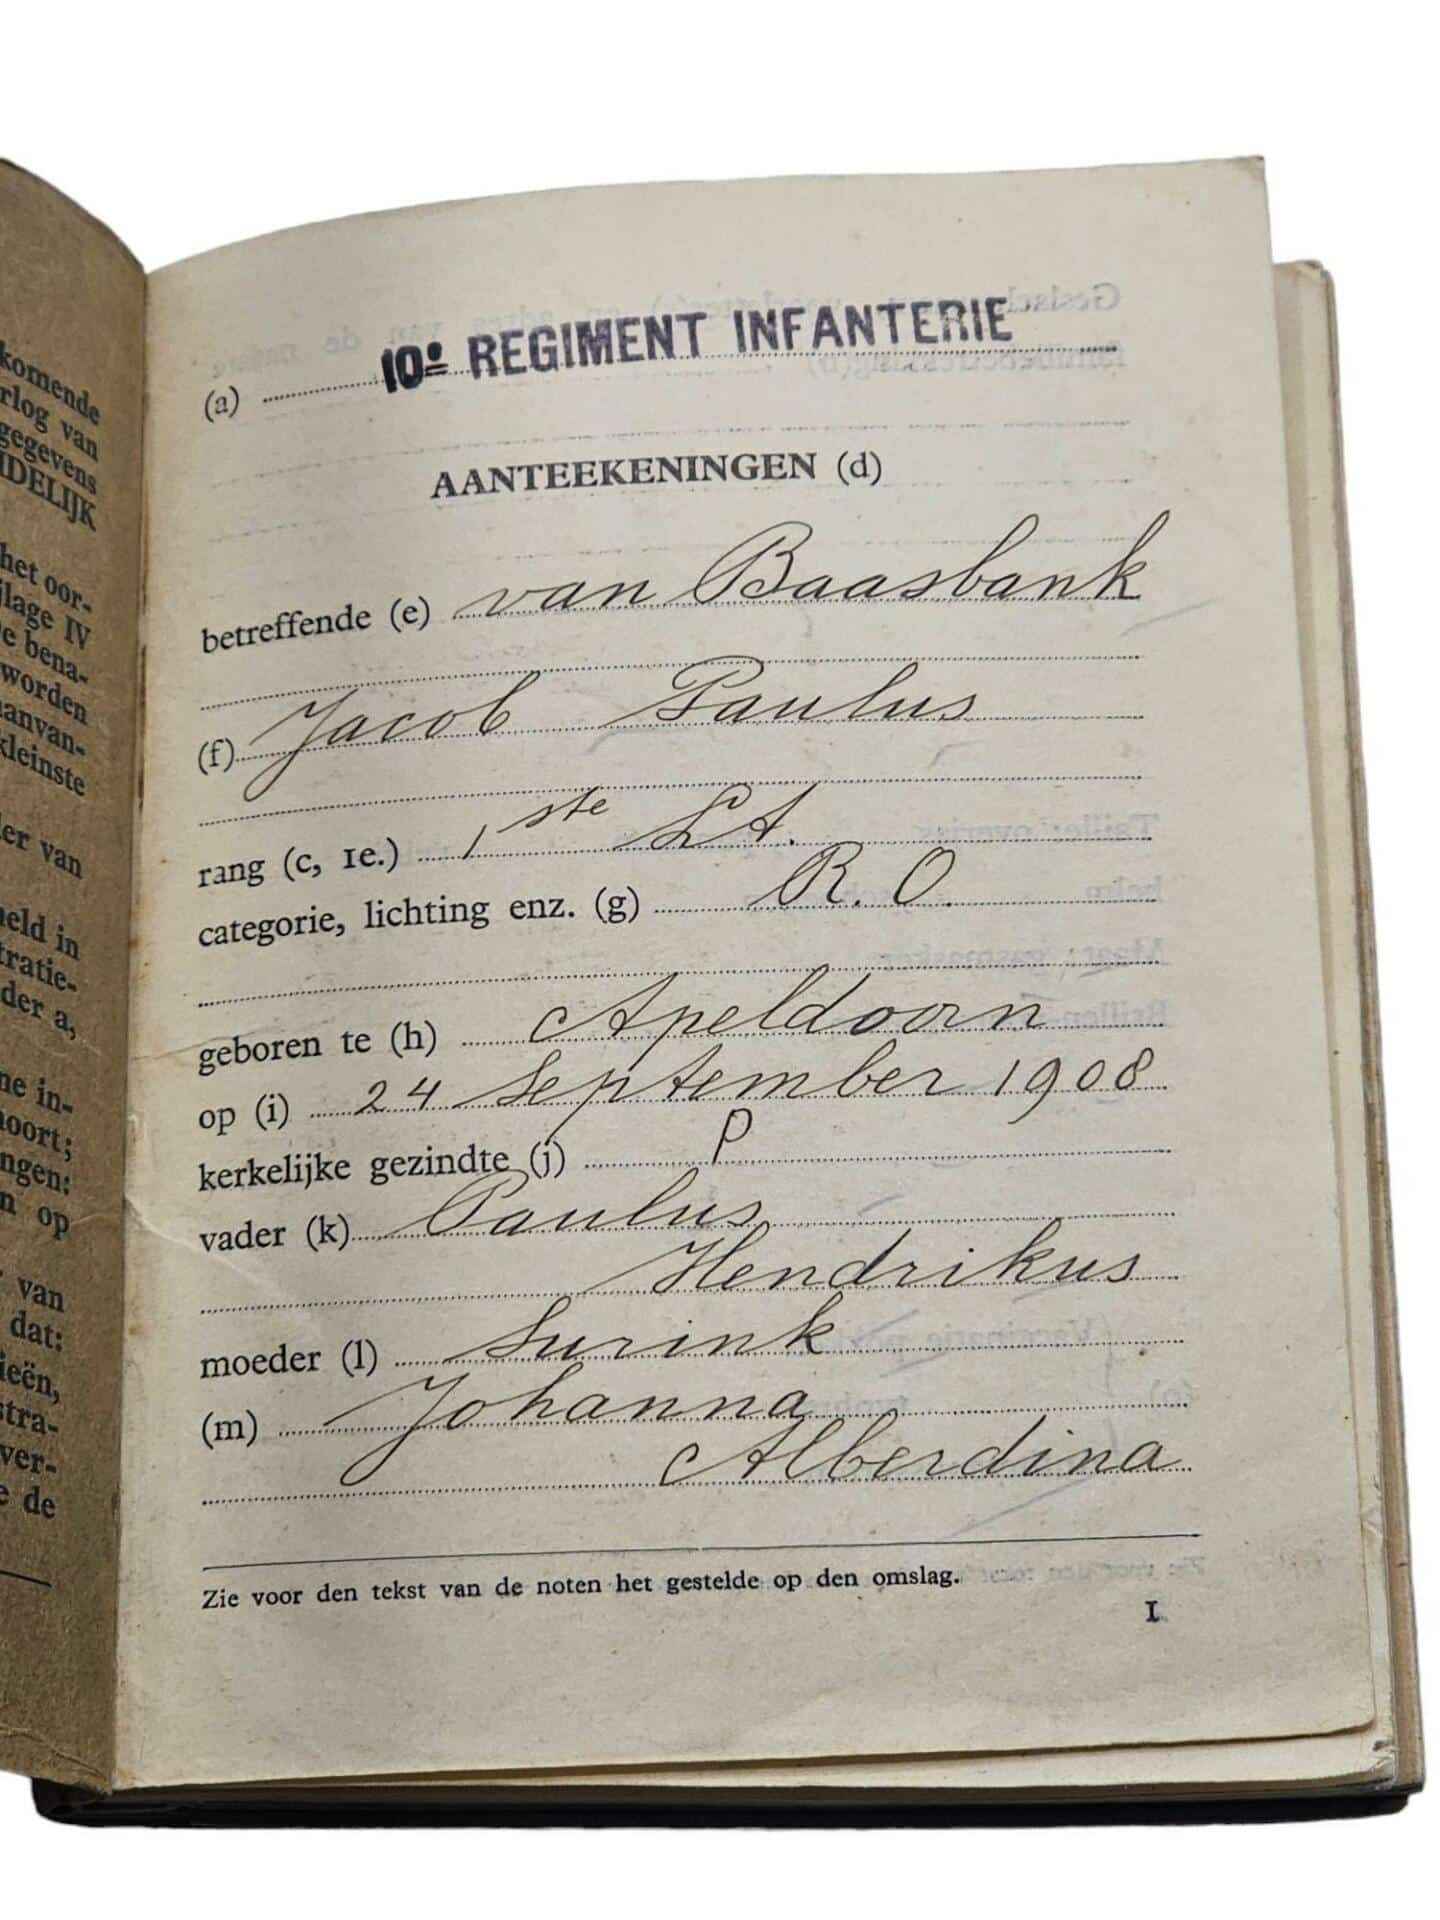 komende
rlog van
gegevens
IDELIJK
het oor-
jlage IV
De bena-
worden
aanvan-
kleinste
er van
neld in
tratie-
der a,
ne in-
noort;
ngen:
n op
van
dat:
ieën,
stra-
ver-
e de
10e REGIMENT INFANTERIE
(a)
AANTEEKENINGEN (d)
betreffende (e) van Baasbank
(f) Jacob Paulus
rang (c, 1e.) 1ste Lt.
categorie, lichting enz. (g) R. O.
geboren te (h) Apeldoorn
op (i) 24 September 1908
kerkelijke gezindte (j) P
vader (k) Paulus
Hendrikus
moeder (l) Surink
(m) Johanna
Alberdina
Zie voor den tekst van de noten het gestelde op den omslag.
1